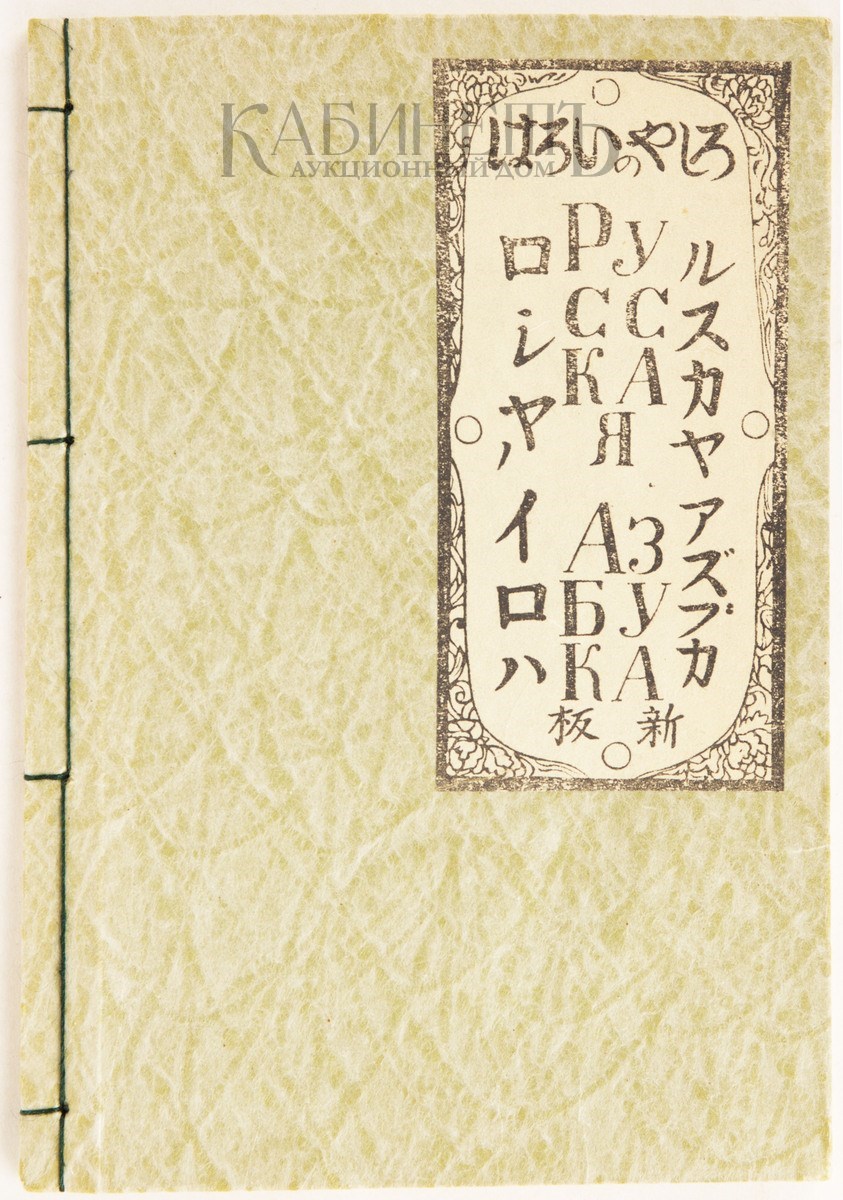 КАБИНЕТЪ
АУКЦИОННЫЙ ДОМ
ろしやのいろは
ルスカヤ アズブカ
РУ
СС
КА
Я
АЗ
БУ
КА
ロシヤノ イロハ
新板